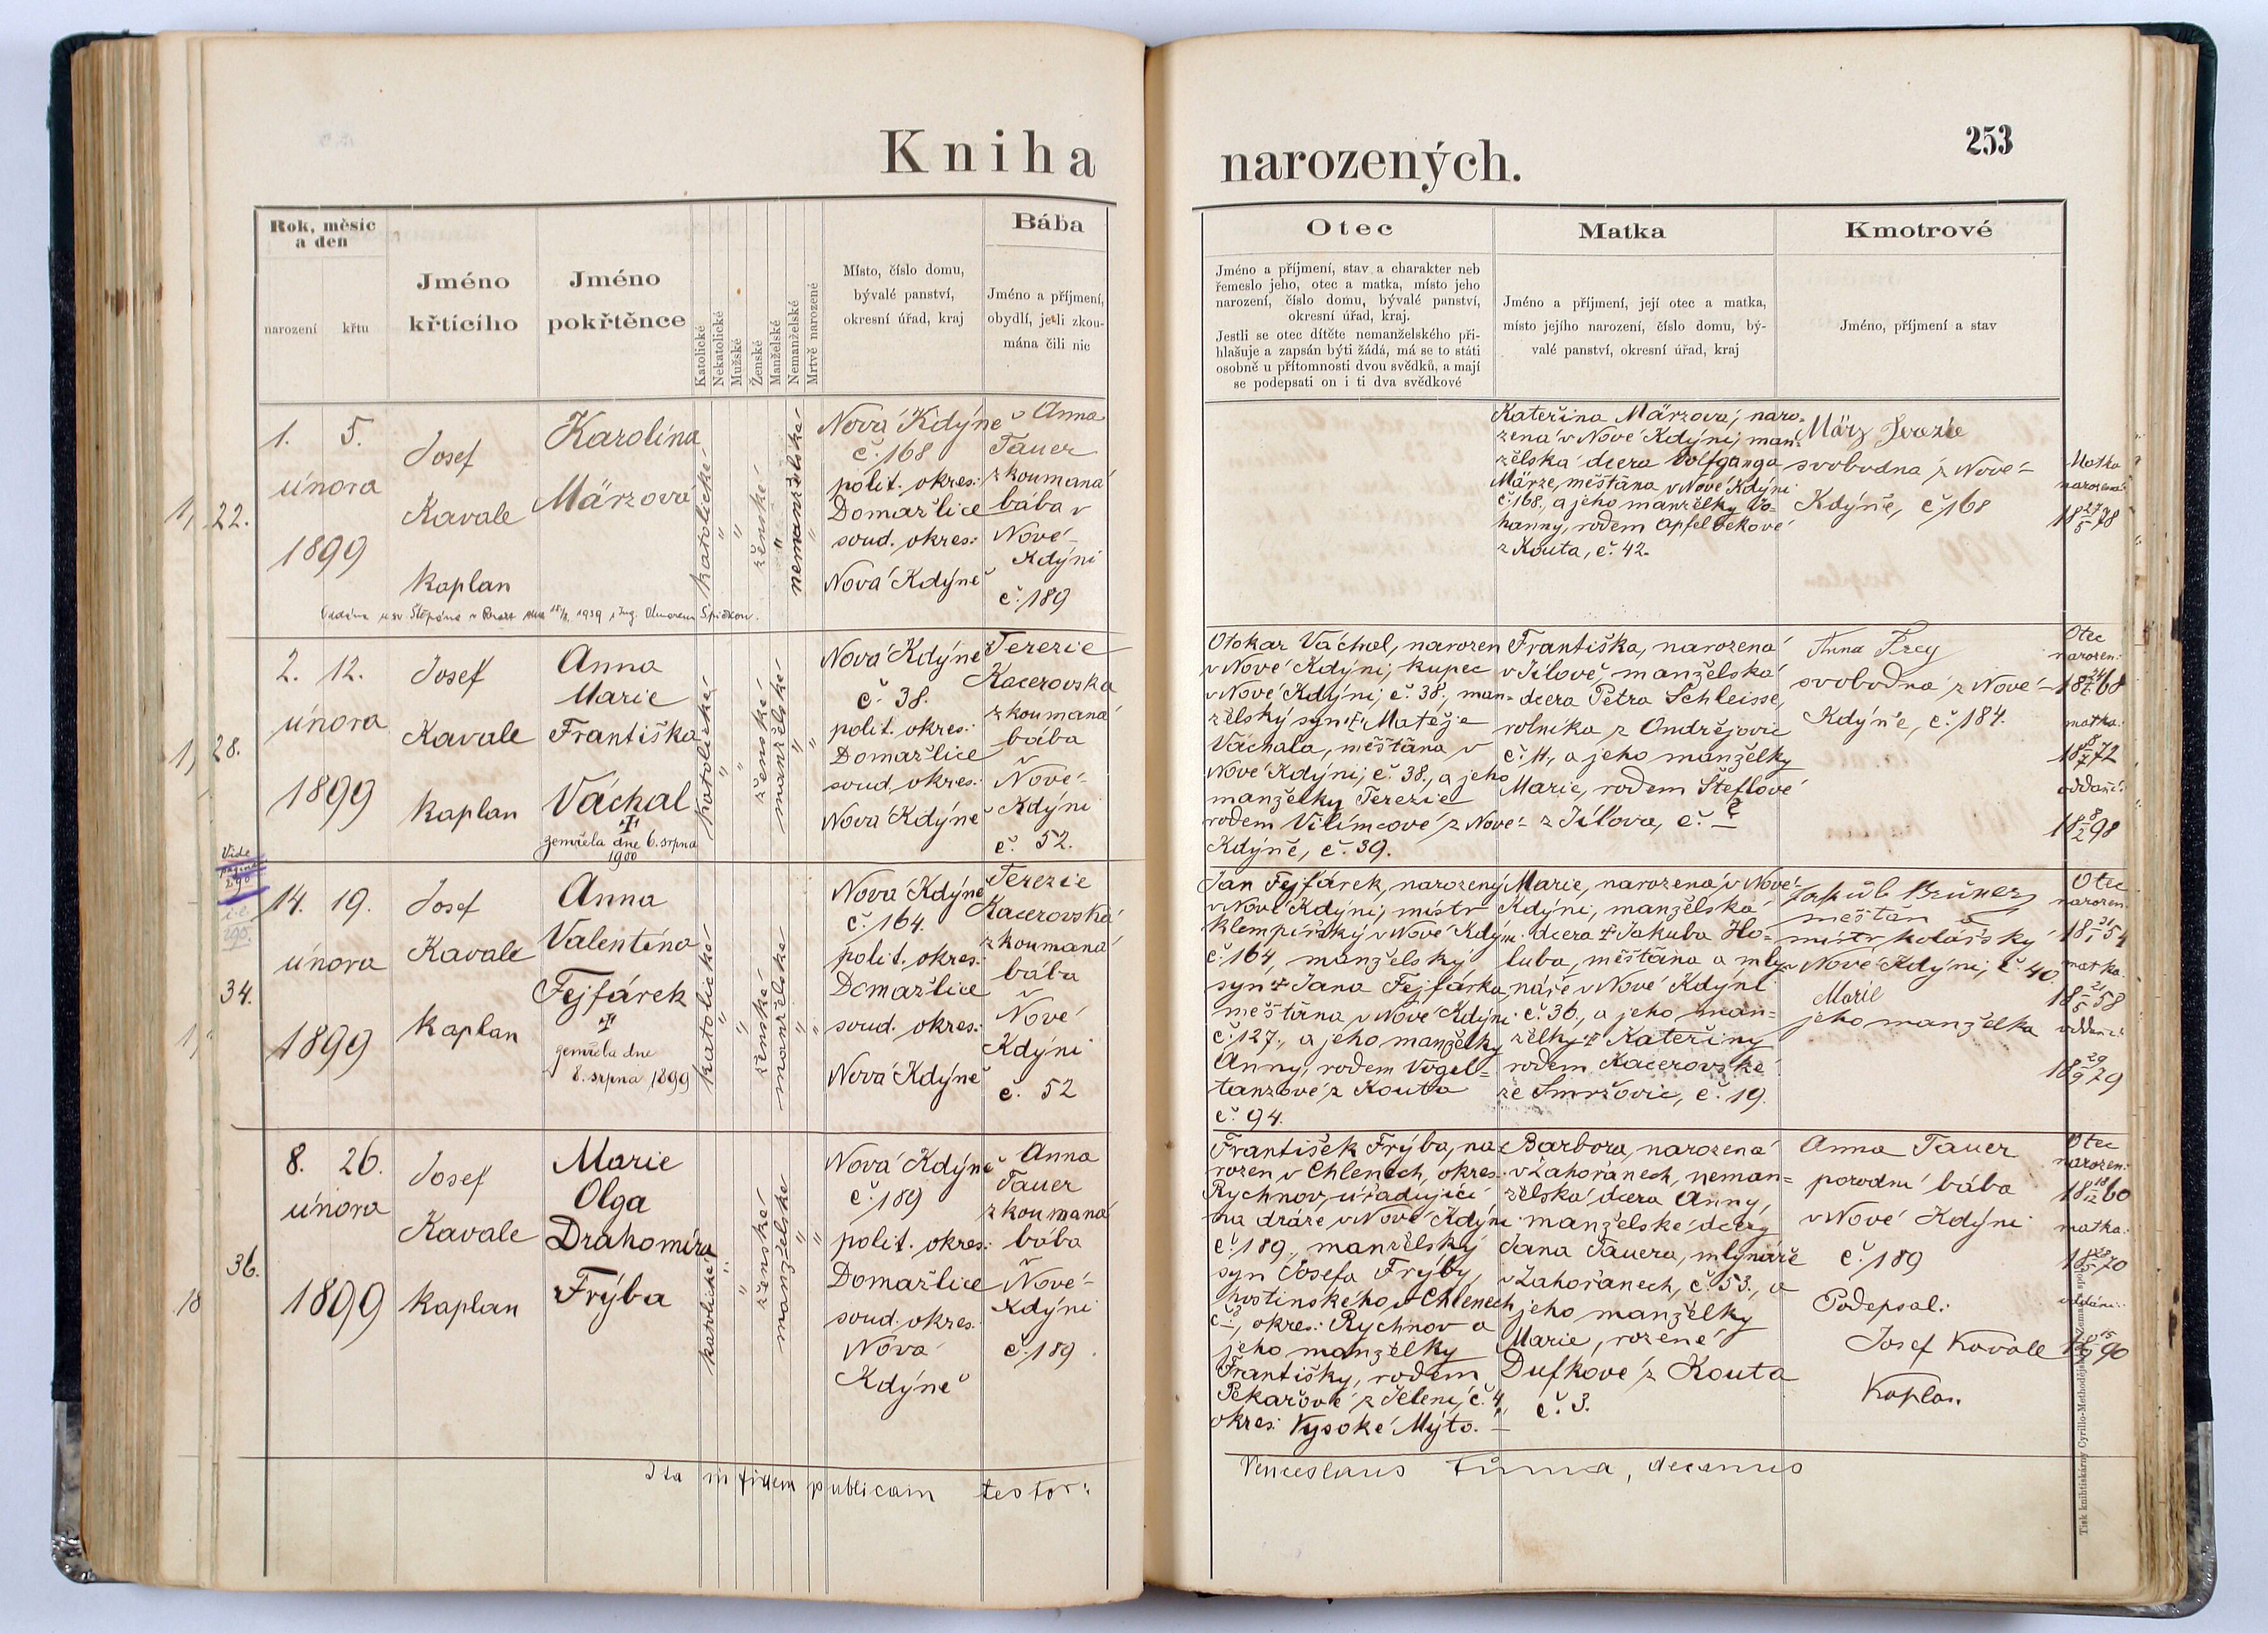 Kniha
Rok, měsíc
a den
narození
křtu
Jméno
křtícího
Jméno
pokřtěnce
Katolické
Nekatolické
Mužské
Ženské
Manželské
Nemanželské
Mrtvě narozené
Místo, číslo domu,
bývalé panství,
okresní úřad, kraj
Bába
Jméno a příjmení,
obydlí, je-li zkou-
mána čili nic
22.
1. 5.
února
1899
Josef
Kavale
kaplan
Karolina
Märzová
katolické
"
"
ženské
"
nemanželské
"
Nová Kdýně
č. 168
polit. okres:
Domažlice
soud. okres:
Nová Kdýně
Anna
Tauer
zkoumaná
bába v
Nové
Kdýni
č. 189
28.
2. 12.
února
1899
Josef
Kavale
kaplan
Anna
Marie
Františka
Váchal
zemřela dne 6. srpna
1900
katolické
"
"
ženské
manželské
"
"
Nová Kdýně
č. 38.
polit. okres:
Domažlice
soud. okres:
Nová Kdýně
Terezie
Kacerovská
zkoumaná
bába
v
Nové
Kdýni
č. 52.
Vide
pagina
290
34.
14. 19.
února
1899
Josef
Kavale
kaplan
Anna
Valentina
Fejfárek
zemřela dne
8. srpna 1899
katolické
"
"
ženské
manželské
"
"
Nová Kdýně
č. 164.
polit. okres:
Domažlice
soud. okres:
Nová Kdýně
Terezie
Kacerovská
zkoumaná
bába
v
Nové
Kdýni
č. 52
36.
8. 26.
února
1899
Josef
Kavale
kaplan
Marie
Olga
Drahomíra
Frýba
katolické
"
"
ženské
manželské
"
"
Nová Kdýně
č. 189
polit. okres:
Domažlice
soud. okres:
Nová
Kdýně
Anna
Tauer
zkoumaná
bába
v
Nové
Kdýni
č. 189
Ita in fidem publicam testor:
narozených.
253
Otec
Jméno a příjmení, stav a charakter neb
řemeslo jeho, otec a matka, místo jeho
narození, číslo domu, bývalé panství,
okresní úřad, kraj.
Jestli se otec dítěte nemanželského při-
hlašuje a zapsán býti žádá, má se to státi
osobně u přítomnosti dvou svědků, a mají
se podepsati on i ti dva svědkové
Matka
Jméno a příjmení, její otec a matka,
místo jejího narození, číslo domu, bý-
valé panství, okresní úřad, kraj
Kmotrové
Jméno, příjmení a stav
Kateřina Märzová, naro-
zená v Nové Kdýni, man-
želská dcera Wolfganga
Märze, měštána v Nové Kdýni
č. 168., a jeho manželky Jo-
hanny, rodem Apfelbekové
z Kouta, č. 42.
März
svobodná z Nové
Kdýně, č. 168
Matka
narozená:
18 27/5 78
Otokar Váchal, narozen
v Nové Kdýni, kupec
v Nové Kdýni, č. 38., man-
želský syn † Matěje
Váchala, měštána v
Nové Kdýni, č. 38., a jeho
manželky Terezie
rodem Vilímcové z Nové
Kdýně, č. 39.
Františka, narozená
v Jílové, manželská
dcera Petra Schleisse,
rolníka z Ondřejovic
č. 11., a jeho manželky
Marie, rodem Šteflové
z Jílova, č.
Anna
svobodná z Nové
Kdýně, č. 184.
Otec
narozen:
matka:
18 8/7 72
oddaní:
18 8/2 98
Jan Fejfárek, narozený
v Nové Kdýni, mistr
klempířský v Nové Kdýni
č. 164, manželský
syn † Jana Fejfárka,
měštána v Nové Kdýni
č. 127., a jeho manželky
Anny, rodem Vogel-
tanzové z Kouta
č. 94.
Marie, narozená v Nové
Kdýni, manželská
dcera † Jakuba Ho-
luba, měštána a mly-
náře v Nové Kdýni
č. 36., a jeho man-
želky † Kateřiny
rodem Kacerovské
ze Smržovic, č. 19.
Jakub
měštan a
mistr kolářský
v Nové Kdýni, č. 40.
Marie
jeho manželka
Otec
narozen:
18 21/1 54
matka:
18 21/5 58
oddaní:
18 29/9 79
František Frýba, na-
rozen v Chlenech, okres:
Rychnov, úřadující
na dráze v Nové Kdýni
č. 189., manželský
syn Josefa Frýby,
hostinského v Chlenech
okres: Rychnov a
jeho manželky
Františky, rodem
Pekařové z Jelení, č. 4,
okres: Vysoké Mýto.
Barbora, narozená
v Zahořanech, neman-
želská dcera Anny,
manželské dcery
Jana Tauera, mlynáře
v Zahořanech, č. 53., a
jeho manželky
Marie, rozené
Dufkové z Kouta
č. 3.
Anna Tauer
porodní bába
v Nové Kdýni
č. 189
Podepsal:
Josef Kavale
Kaplan
Otec
narozen:
18 18/12 60
matka:
oddáni:
Venceslaus Tůma, decanus
Tisk knihtiskárny Cyrillo-Methodějské